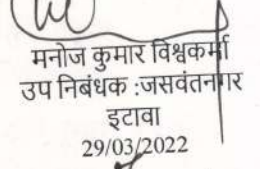 मनोज कुमार विश्वकर्मा
उप निबंधक :जसवंतनगर
इटावा
29/03/2022